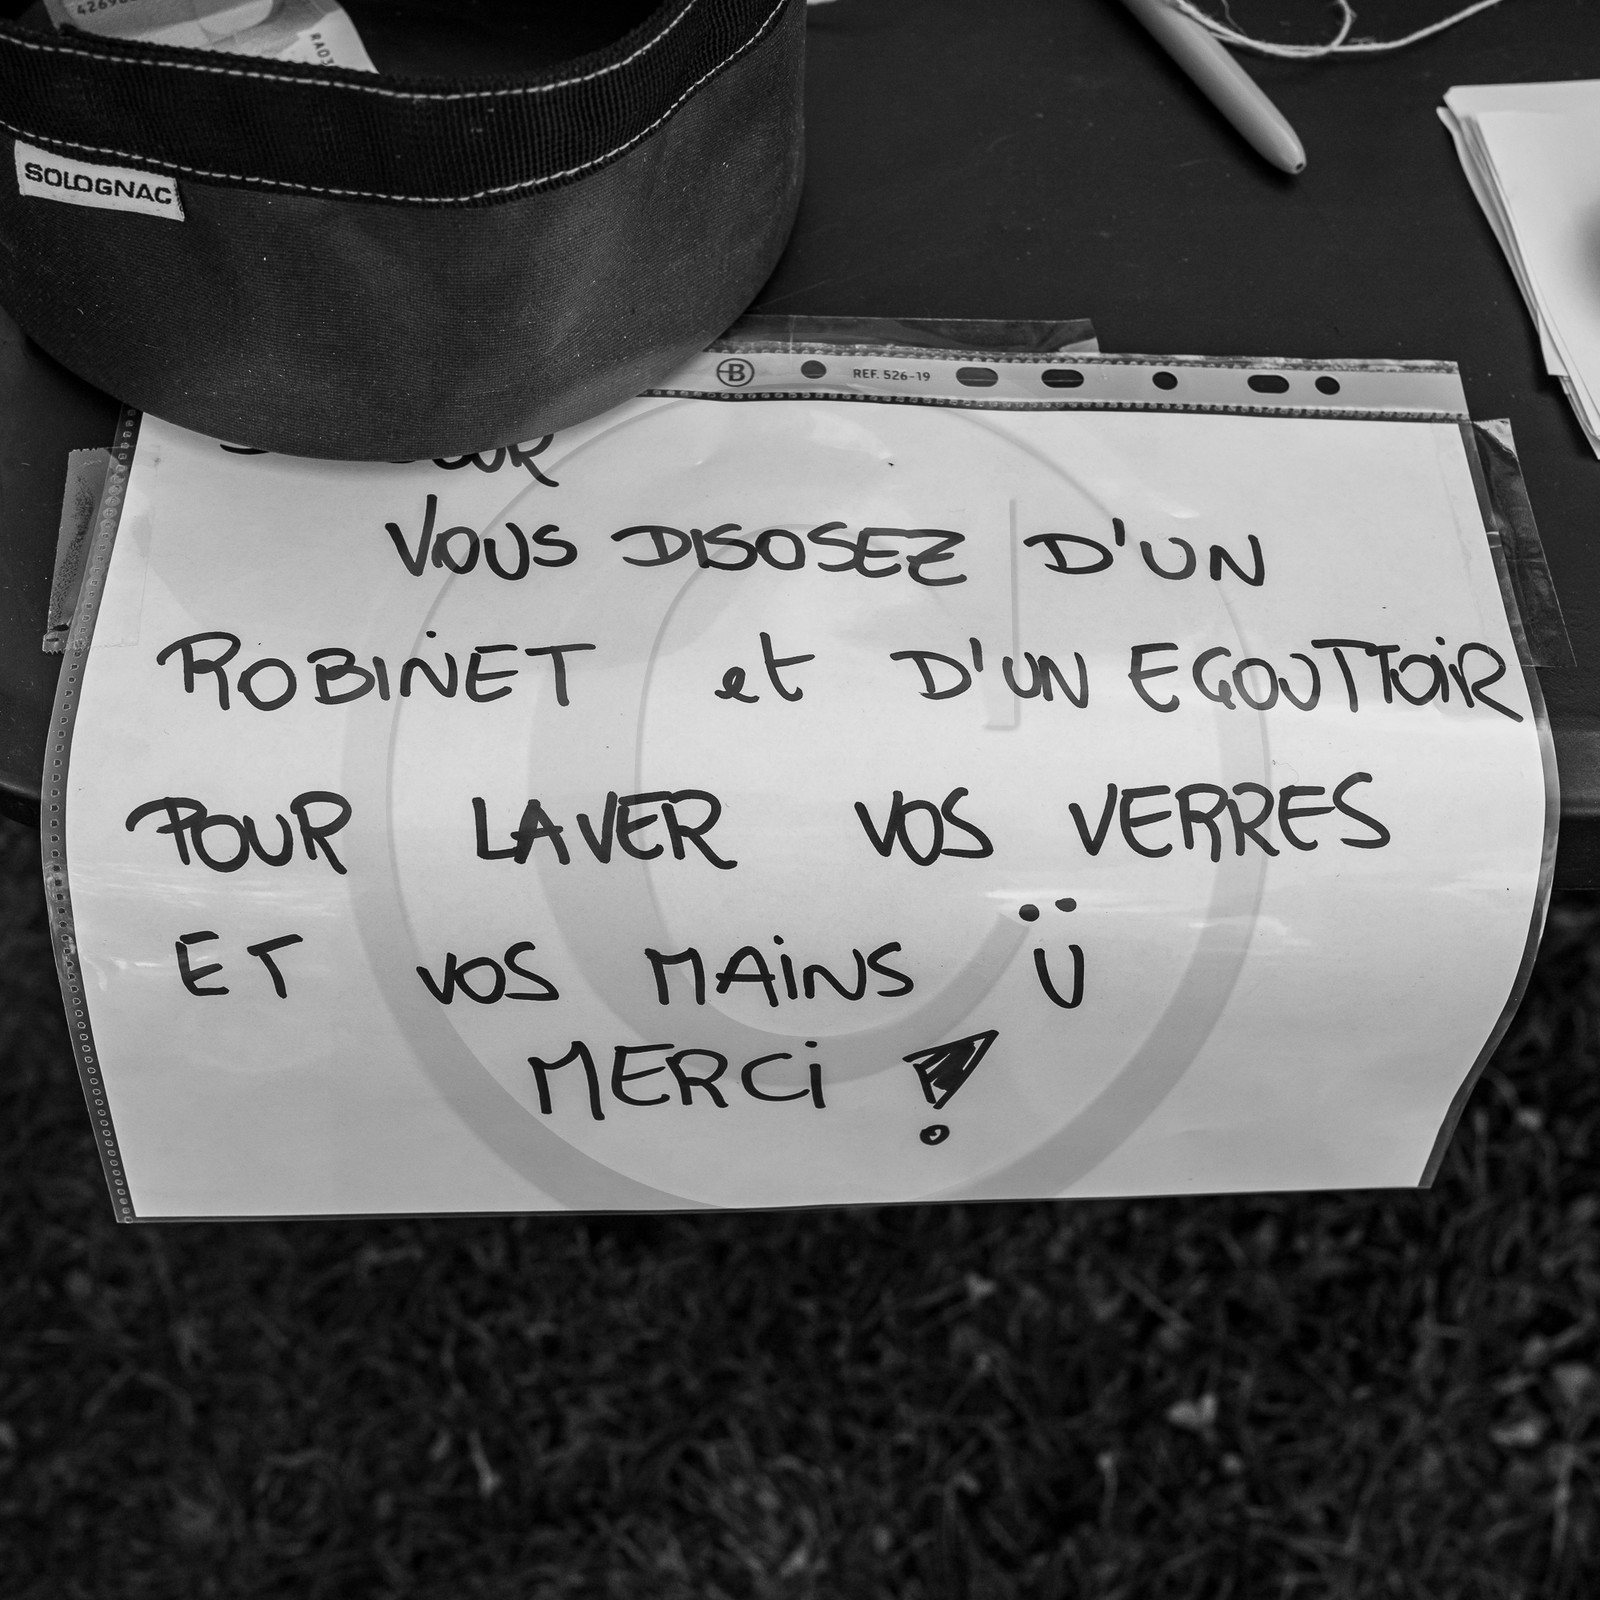 426
RA03
SOLOGNAC
B REF. 526-19
VOUS DISOSEZ D'UN
ROBINET et D'UN EGOUTTOIR
POUR LAVER VOS VERRES
ET VOS MAINS Ü
MERCI !